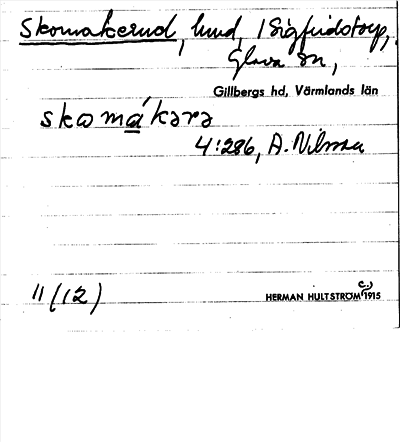 Skomakerud, hmd, i Sigfridstorp,
Glava sn,
Gillbergs hd, Värmlands län
skomákərə
4:286, A. Nilsson
11 (12)
HERMAN HULTSTRÖM (c.) 1915